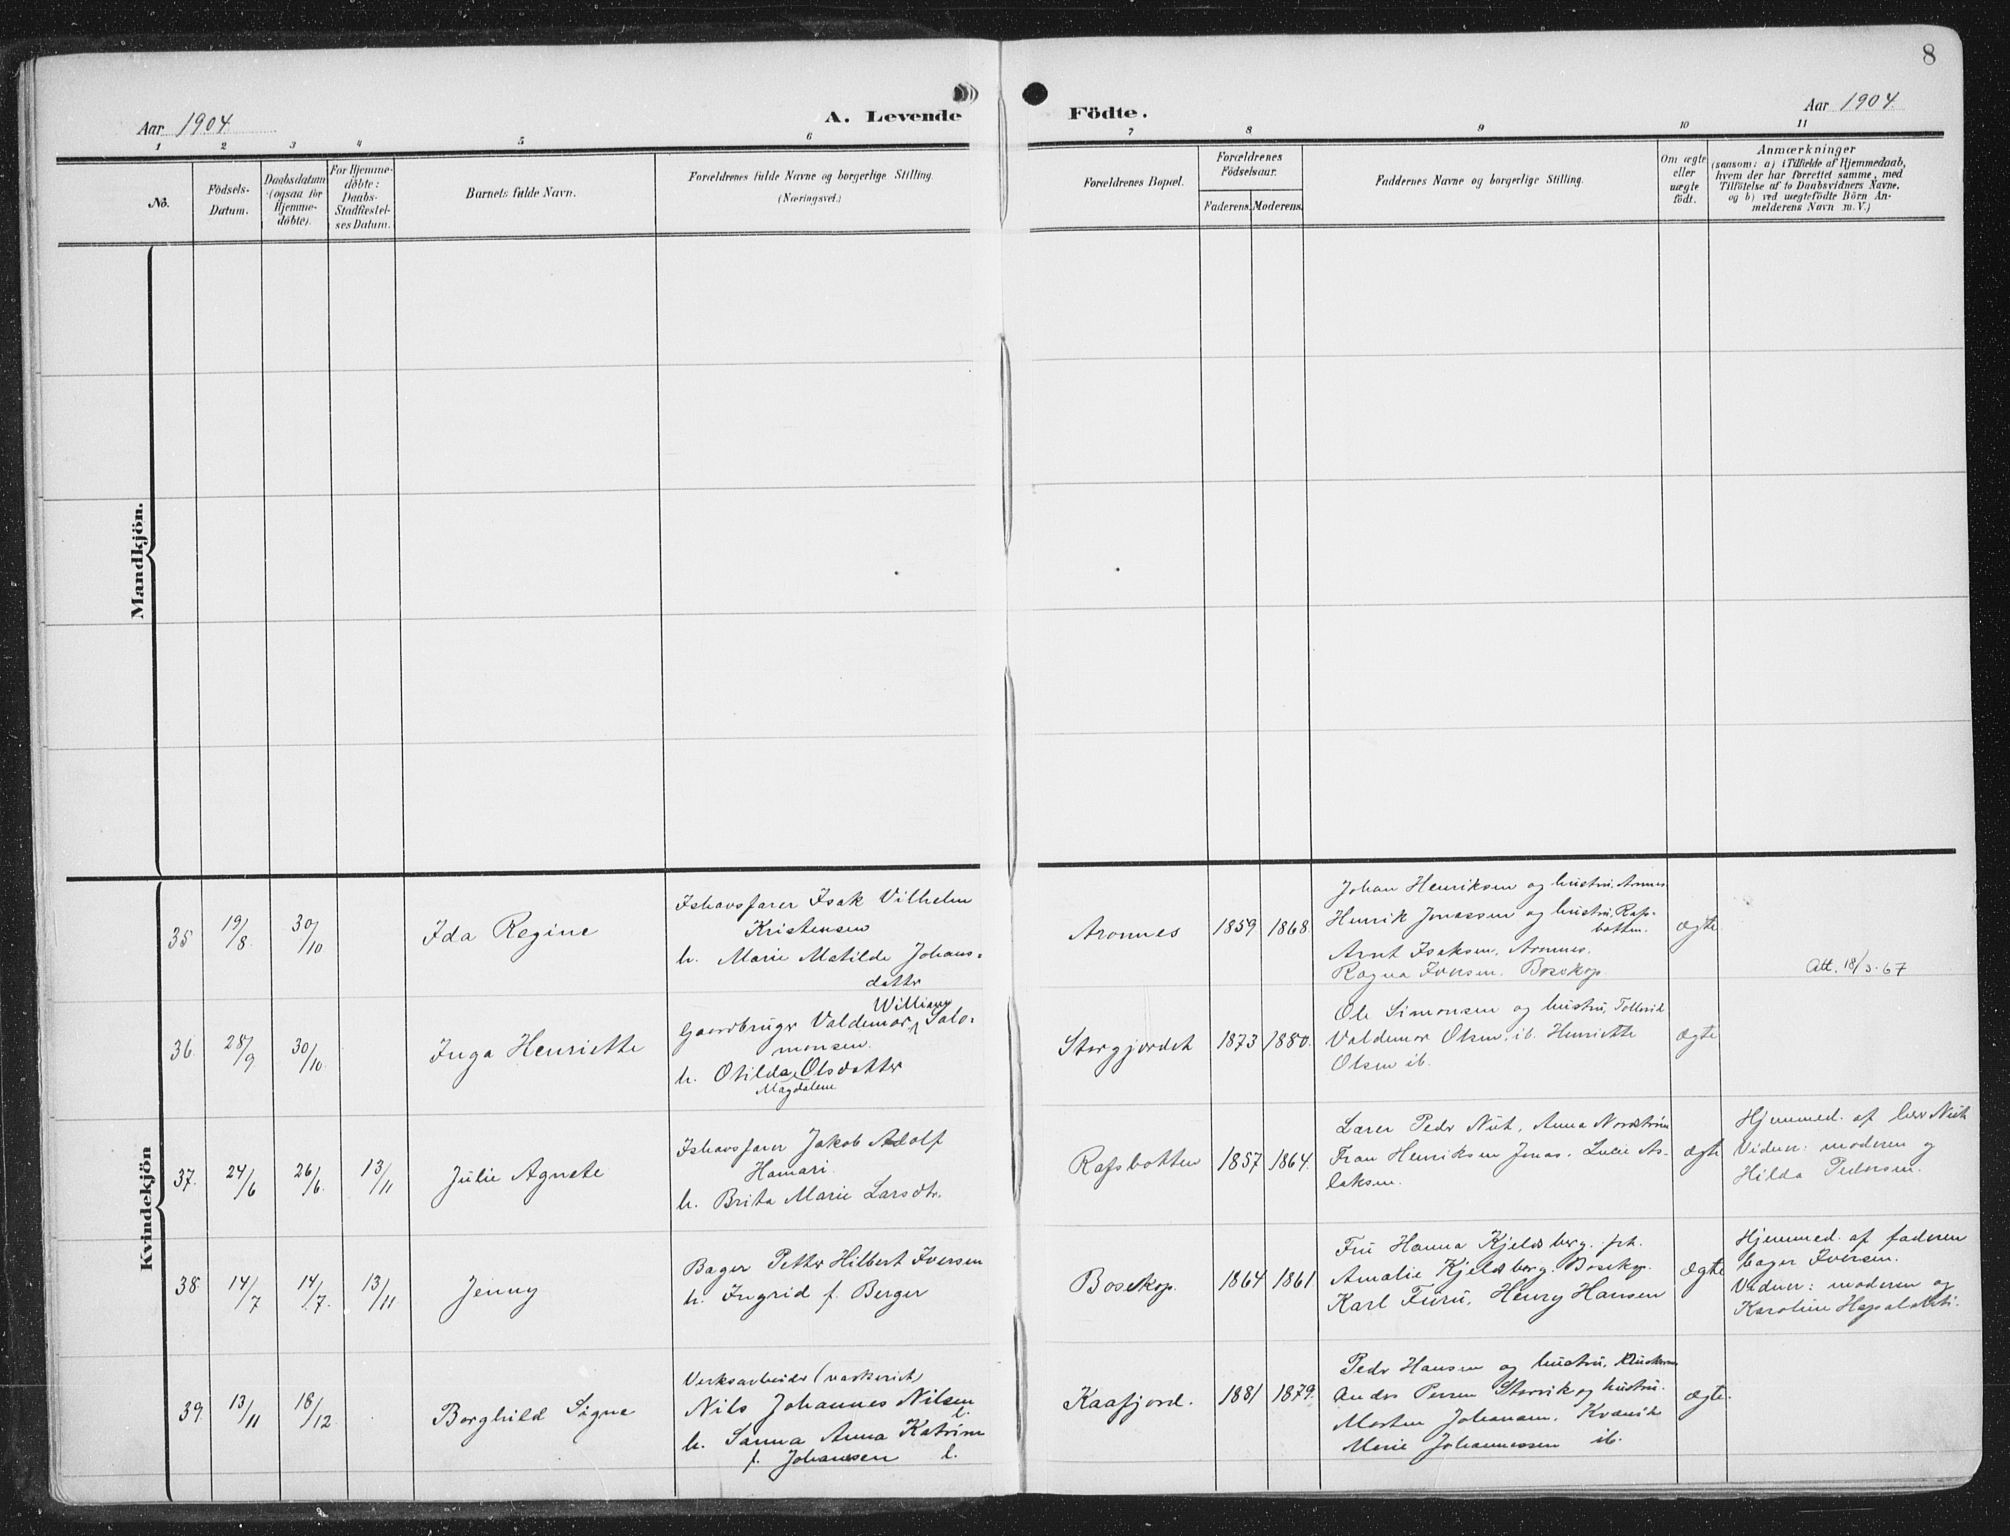 8
Aar 1904
A. Levende
Födte.
Aar 1904
1 2 3 4 5 6 7 8 9 10 11
No.
Födsels-
Datum.
Daabsdatum
(ogsaa for
Hjemme-
döbte).
For Hjemme-
döbte:
Daabs-
Stadfæstel-
ses Datum.
Barnets fulde Navn.
Forældrenes fulde Navne og borgerlige Stilling.
(Næringsvei.)
Forældrenes Bopæl.
Forældrenes
Födselsaar.
Faderens. Moderens.
Faddernes Navne og borgerlige Stilling.
Om ægte
eller
uægte
födt.
Anmærkninger
(saasom: a) i Tilfælde af Hjemmedaab,
hvem der har forrettet samme, med
Tilföielse af to Daabsvidners Navne,
og b) ved uægtefödte Börn An-
melderens Navn m. V.)
Mandkjön.
Kvindekjön
35
19/8
30/10
Ida Regine
Ishavsfarer Isak Vilhelm
Kristensen
h. Marie Matilde Johans-
dattr
Aronnes
1859
1868.
Johan Henriksen og hustru, Aronnes
Henrik Jonassen og hustru, Rafs-
botten.
Arnt Isaksen, Aronnes.
Ragna Iversen, Bosekop.
ægte.
Att. 18/3-67
36.
28/9
30/10.
Inga Henriette
William
Gaardbruger Valdemar Salo-
monsen.
h. Otilde Olsdatter
Magdalene
Storgjordet
1873
1880.
Ole Simonsen og hustru, Tollevik
Valdemar Olsen, ib. Henriette
Olsen ib.
ægte
37.
24/6
26/6.
13/11
Julie Agnete
Ishavsfarer Jakob Adolf
Hamari.
h. Brita Marie Larsdtr.
Rafsbotten
1857
1864.
Lærer Pedr Nut, Anna Nordström
Fran Henriksen Jonas, Lucie As-
laksen.
ægte
Hjemmed. af lær Nut
Vidner: moderen og
Hilda Pedersen.
38.
14/7
14/7.
13/11
Jenny
Bager Petter Hilbert Iversen
h. Ingrid f. Berger
Bosekop.
1864
1861.
Fru Hanna Kjeldsberg, frk.
Amalie Kjeldsberg, Bosekop.
Karl Furu, Henry Hansen
ægte
Hjemmed. af faderen
bager Iversen.
Vidner: moderen og
Karoline
39.
13/11
18/12.
Borghild Signe
Verksarbeider
Nils Johannes Nilsen
l.
h. Sanna Anna Katrine
f. Johannesen l.
Kaafjord.
1881
1879.
Pedr Hansen og hustru,
Anders Persen Storvik og hustru.
Morten Johansen, Kvænvik
Marie Johannessen ib.
ægte.